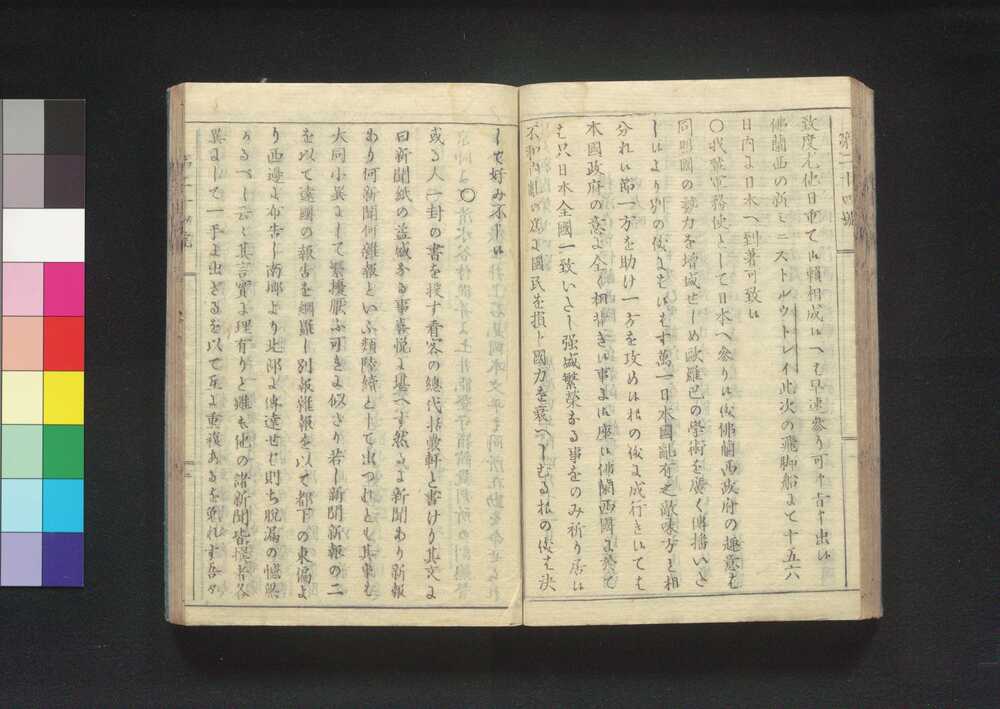 第二十四號
致度尤他日重て御頼相成候へは早速參り可申旨申出候
佛蘭西の新ミニストルウトレイ此次の飛脚船にて十五六
日內に日本へ到著可致候
〇我職軍務使として日本へ參り候儀佛蘭西政府の趣意は
同盟國の勢力を增盛せしめ歐羅巴の學術を廣く傳播いた
しより外の儀には無之萬一日本國亂有之敵味方と相
分れ候節一方を助け一方を攻め候樣の儀に成行き候ては
本國政府の意に全く相背き候事に御座候佛蘭西國に於て
は只日本全國一致いたし强盛繁榮なる事をのみ祈り居候
不和內亂の爲に國民を損し國力を衰へしむる樣の儀は決
して好み不申候
〇
或る人一封の書を投す看客の總代
軒と書けり其文に
曰新聞紙の益盛なる事喜悅に堪へす然るに新聞あり新報
あり何新聞何雜報といふ類陸續として出つれとも其事も
大同小異にして繁擾厭ふ可きに似たり若し新聞新報の二
を以て遠國の報告を網羅し別報雜報を以て都下の東偏よ
り西邊に布告し南鄰より北鄰に傳達せは則ち脫漏の憾無
かるへし云々其言實に理有りと雖も他の諸新聞皆撰者各
異にして一手に出さるを以て互に重複あるを免れす吾々